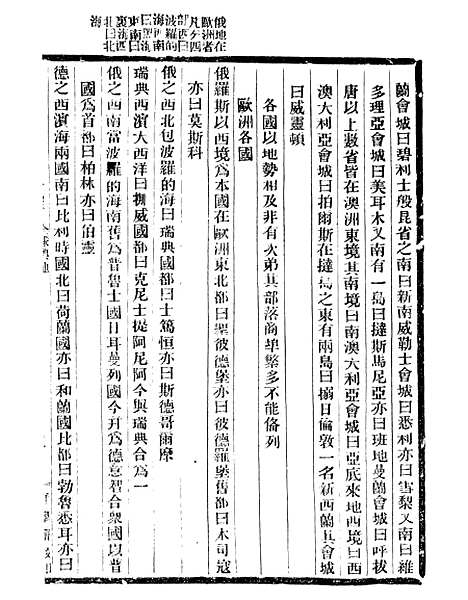 俄地在
歐洲者
凡分四
部西曰
波羅的
海西南
曰黑海
東南曰
裏海西
北曰北
海
蘭會城曰碧利士般昆省之南曰新南威勒士會城曰悉利亦曰雪梨又南曰維
多理亞會城曰美耳木又南有一島曰撻斯馬尼亞亦曰班地曼蘭會城曰呼拔
唐以上數省皆在澳洲東境其南境曰南澳大利亞會城曰亞底來地西境曰西
澳大利亞會城曰拍爾斯在撻島之東有兩島曰搦日倫敦一名新西蘭其會城
曰威靈頓
各國以地勢相及非有次弟其部落商埠繁多不能備列
歐洲各國
俄羅斯以西境爲本國在歐洲東北都曰聖彼德堡亦曰彼德羅堡舊都曰木司寇
亦曰莫斯科
俄之西北包波羅的海曰瑞典國都曰士篤恒亦曰斯德哥爾摩
瑞典西濱大西洋曰挪威國都曰克尼士提阿尼阿今與瑞典合爲一
俄之西南當波羅的海南舊爲普魯士國日耳曼列國今幷爲德意智合衆國以普
國爲首都曰柏林亦曰伯靈
德之西濱海兩國南曰比利時國北曰荷蘭國亦曰和蘭國比都曰勃魯悉耳亦曰